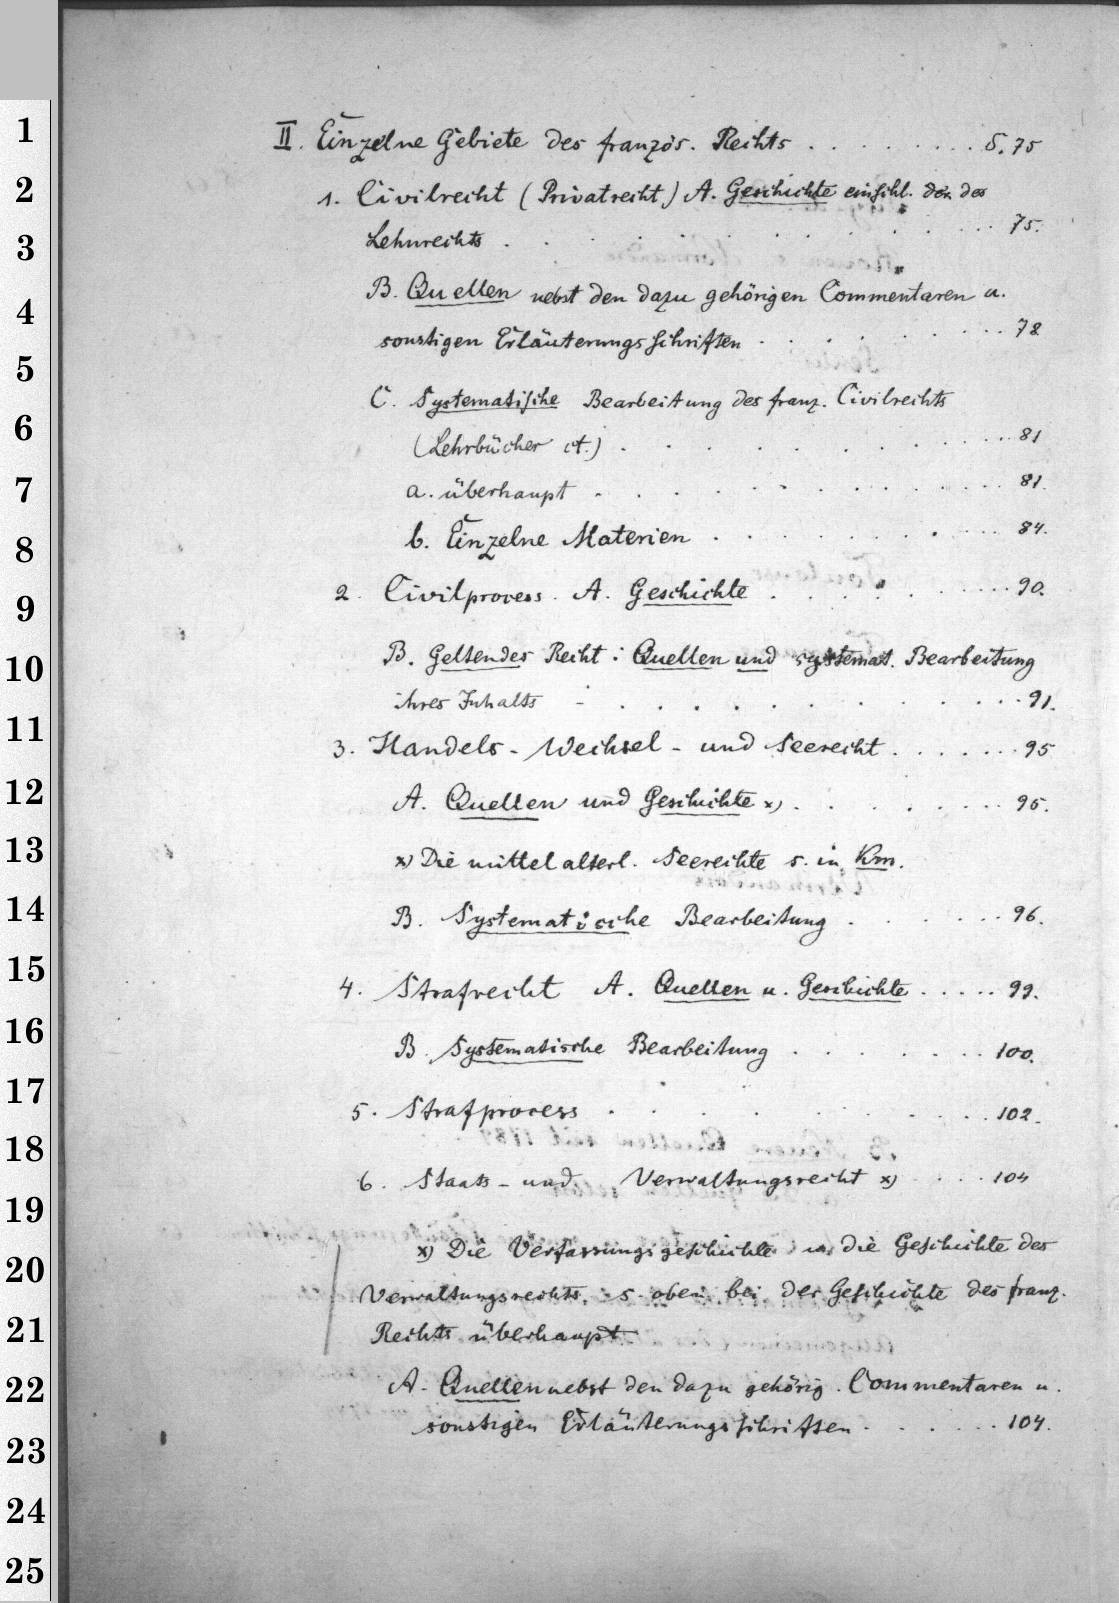 1
II. Einzelne Gebiete des französ. Rechts . . . . . . . . . S. 75
2
1. Civilrecht (Privatrecht) A. Geschichte einschl. der des
3
Lehnrechts . . . . . . . . . . . . 75.
4
B. Quellen nebst den dazu gehörigen Commentaren u.
5
sonstigen Erläuterungsschriften . . . . . . . . 78
6
C. Systematische Bearbeitung des franz. Civilrechts
(Lehrbücher ct.) . . . . . . . . . . . 81
7
a. überhaupt . . . . . . . . . . . . 81.
8
b. Einzelne Materien . . . . . . . . . . 84.
9
2. Civilprocess. A. Geschichte . . . . . . . . 90.
10
B. Geltendes Recht: Quellen und systemat. Bearbeitung
11
ihres Inhalts - . . . . . . . . . . . . 91.
3. Handels- Wechsel- und Seerecht . . . . . . . 95
12
A. Quellen und Geschichte x) . . . . . . . . 95.
13
x) Die mittelalterl. Seerechte s. in Km.
14
B. Systematische Bearbeitung . . . . . . 96.
15
4. Strafrecht A. Quellen u. Geschichte . . . . . 99.
16
B. Systematische Bearbeitung . . . . . . . . 100.
17
5. Strafprocess . . . . . . . . . . 102.
18
6. Staats- und Verwaltungsrecht x) . . . . 104
19
20
x) Die Verfassungsgeschichte u. die Geschichte des
Verwaltungsrechts s. oben bei der Geschichte des franz.
21
Rechts überhaupt
22
A. Quellen nebst den dazu gehörig. Commentaren u.
23
sonstigen Erläuterungsschriften . . . . . . 104.
24
25